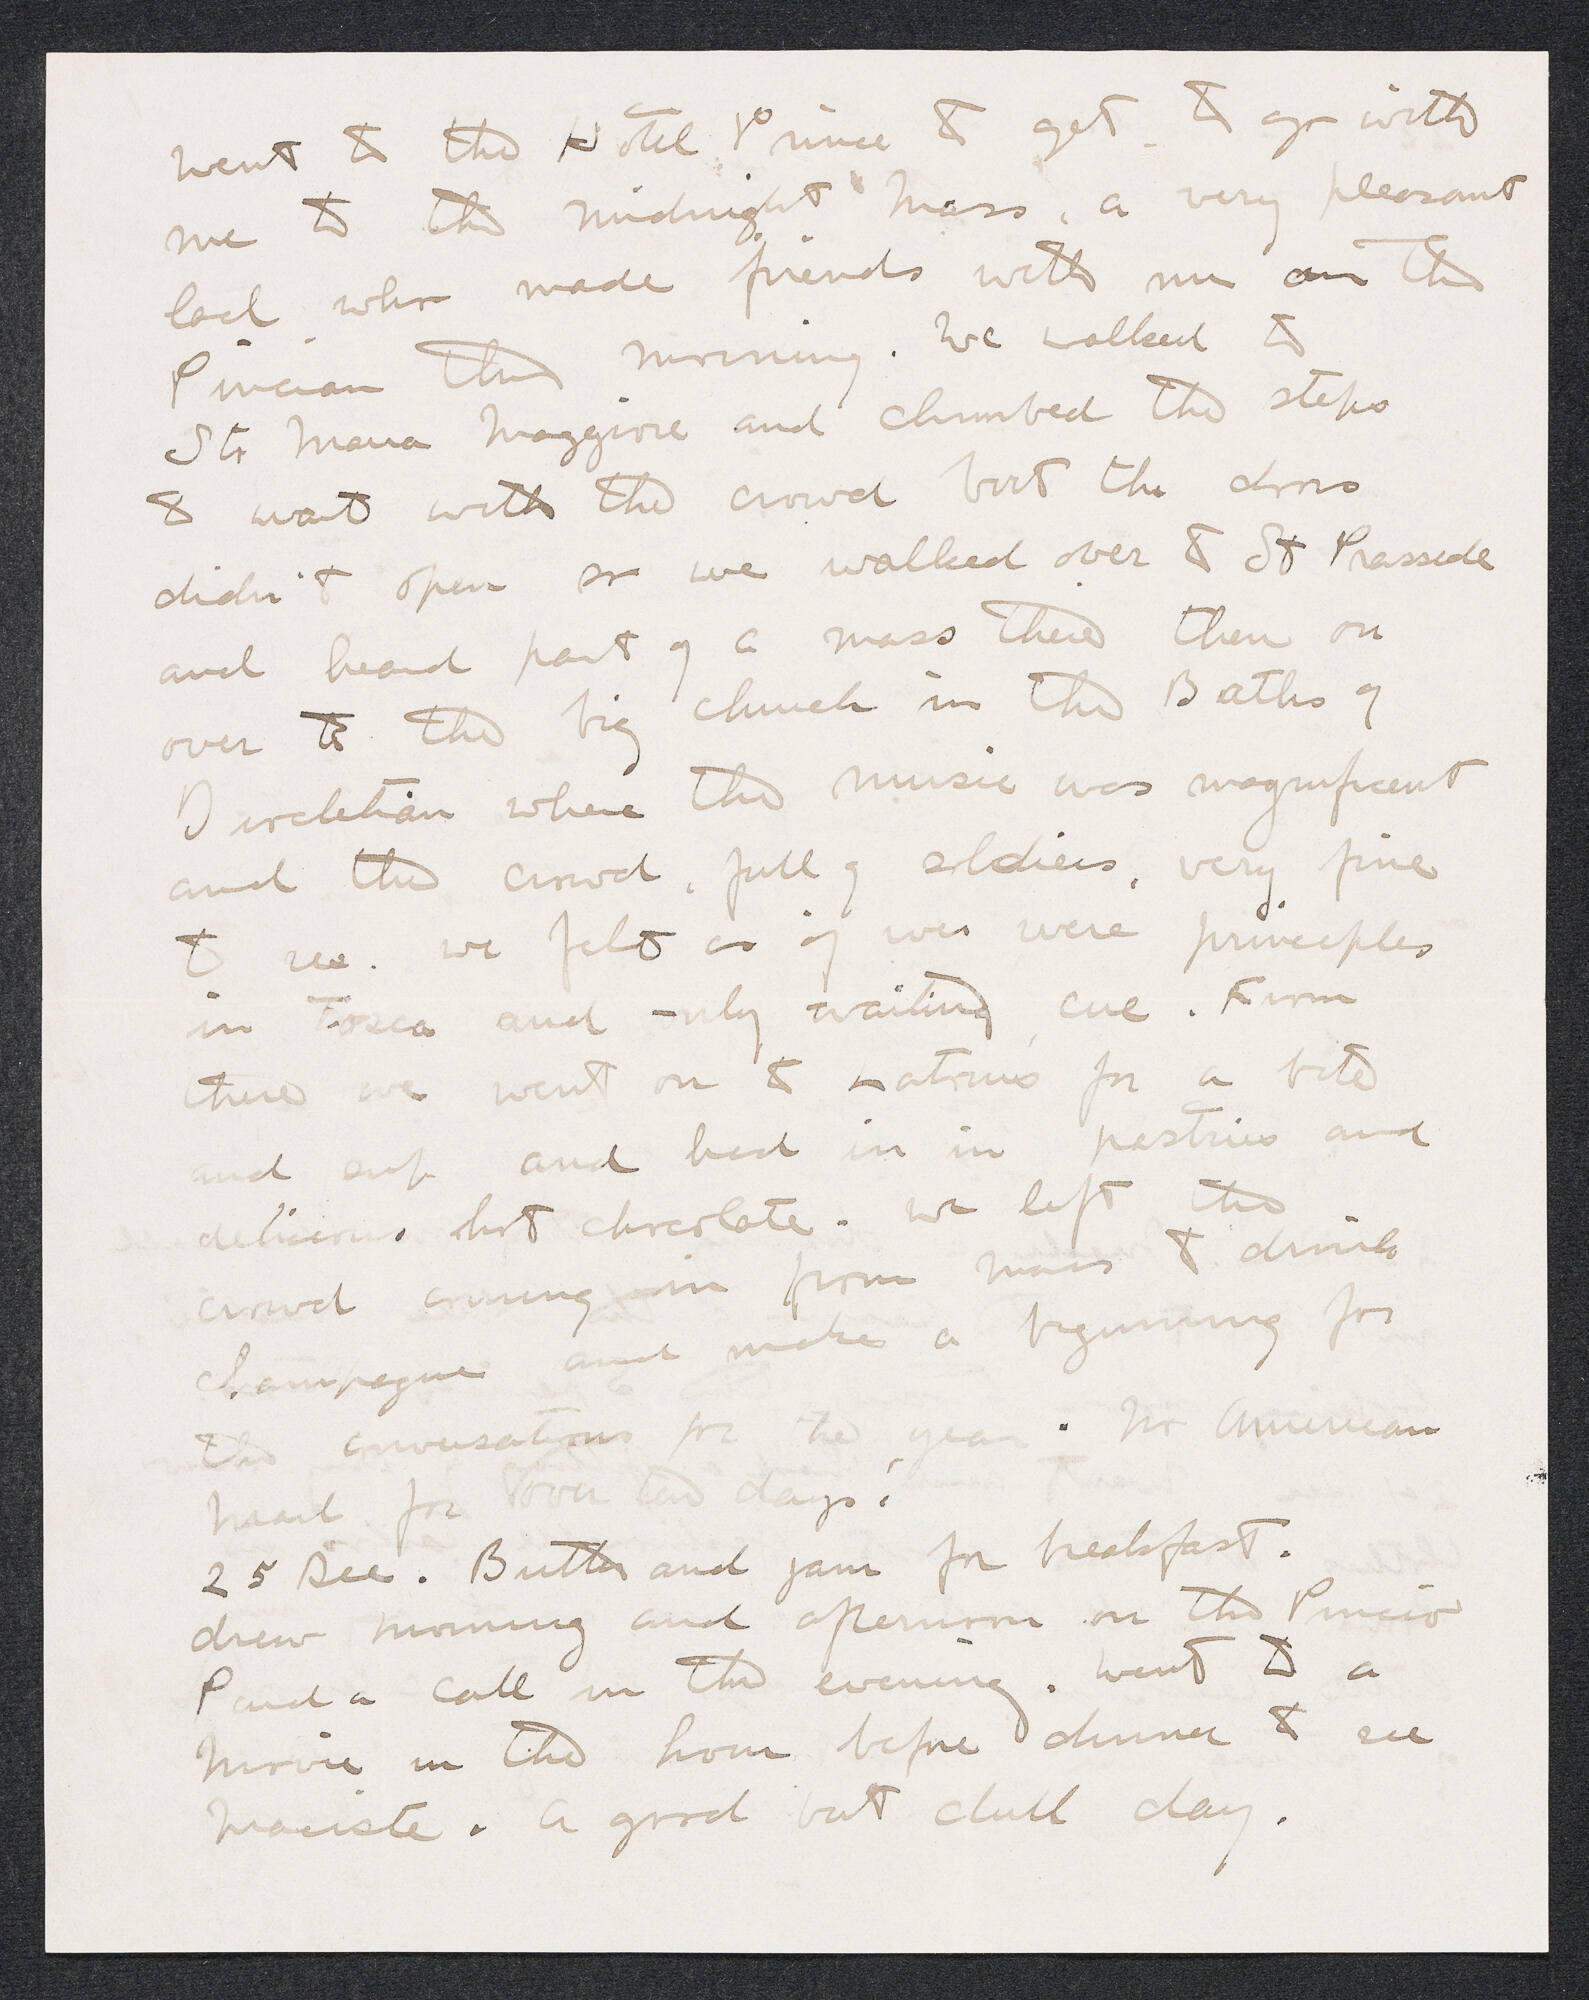 went to the Hotel Prince to get to go with
me to the midnight mass, a very pleasant
lad who made friends with me on the
Pincian this morning. We walked to
Sta Maria Maggiore and climbed the steps
to wait with the crowd but the doors
didn't open so we walked over to St Prassede
and heard part of a mass there then on
over to the big church in the Baths of
Diocletian where the music was magnificent
and the crowd, full of soldiers, very fine
to see. we felt as if we were principles
in Tosca and only waiting cue. From
there we went on to for a bite
and sup and had in in pastries and
delicious hot chocolate. We left the
crowd coming in from mass to drink
champagne and make a beginning for
the conversations for the year. No American
mail for over ten days!
25 Dec. Butter and jam for breakfast.
drew morning and afternoon on the Pincio
Paid a call in the evening. Went to a
movie in the hour before dinner to see
Maciste. A good but dull day.